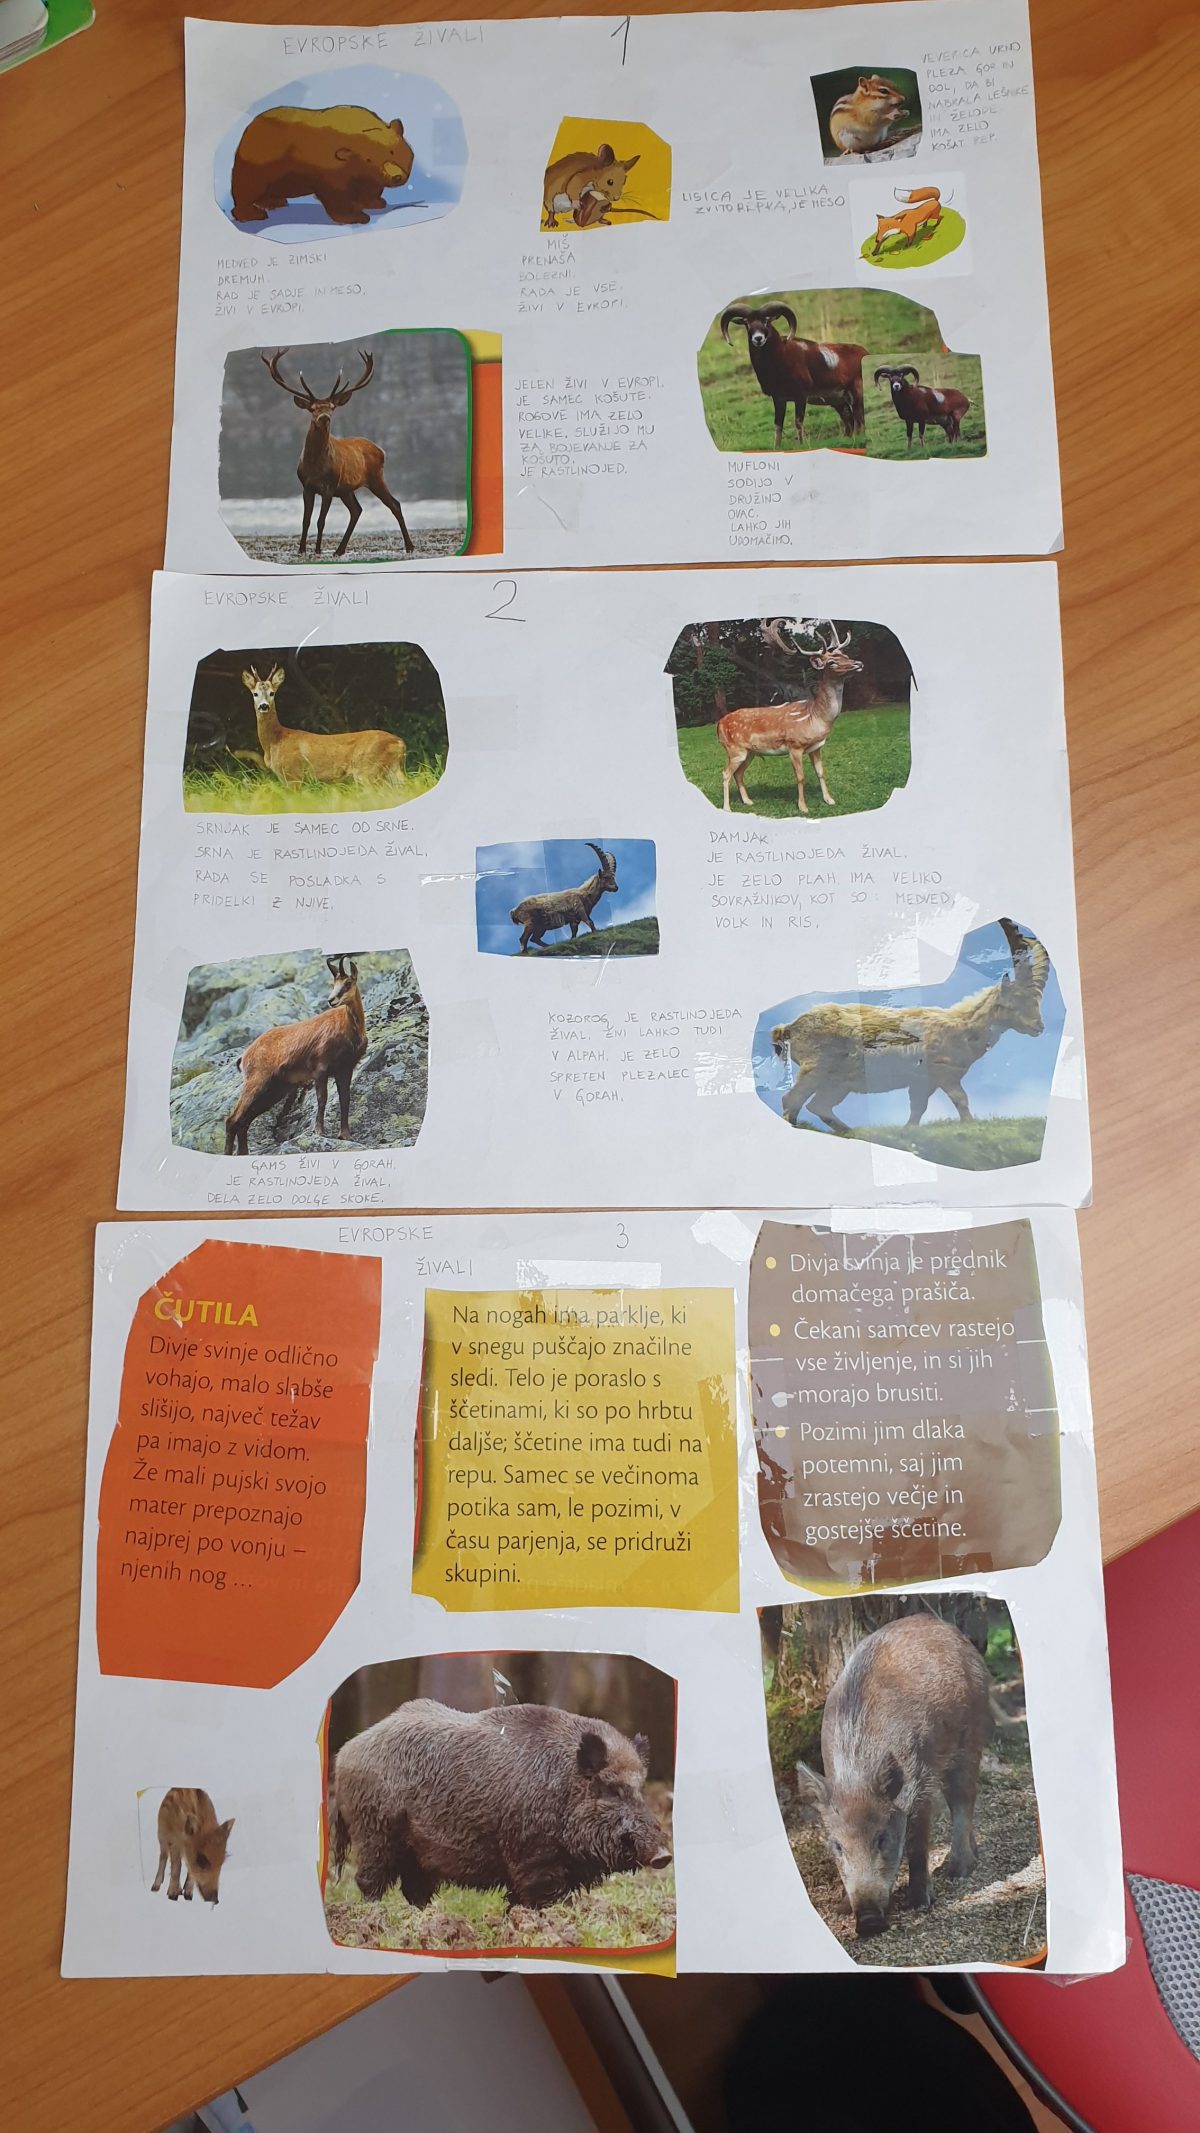 EVROPSKE ŽIVALI
1
VEVERICA URNO
PLEZA GOR IN
DOL, DA BI
NABRALA LEŠNIKE
IN ŽELODE.
IMA ZELO
KOŠAT REP.
LISICA JE VELIKA
ZVITOREPKA, JE MESO
MEDVED JE ZIMSKI
DREMUH.
RAD JE SADJE IN MESO.
ŽIVI V EVROPI.
MIŠ
PRENAŠA
BOLEZNI.
RADA JE VSE.
ŽIVI V EVROPI.
JELEN ŽIVI V EVROPI.
JE SAMEC KOŠUTE.
ROGOVE IMA ZELO
VELIKE, SLUŽIJO MU
ZA BOJEVANJE ZA
KOŠUTO.
JE RASTLINOJED.
MUFLONI
SODIJO V
DRUŽINO
OVAC.
LAHKO JIH
UDOMAČIMO.
EVROPSKE ŽIVALI
2
SRNJAK JE SAMEC OD SRNE.
SRNA JE RASTLINOJEDA ŽIVAL,
RADA SE POSLADKA S
PRIDELKI Z NJIVE.
DAMJAK
JE RASTLINOJEDA ŽIVAL.
JE ZELO PLAH. IMA VELIKO
SOVRAŽNIKOV, KOT SO: MEDVED,
VOLK IN RIS.
KOZOROG JE RASTLINOJEDA
ŽIVAL. ŽIVI LAHKO TUDI
V ALPAH. JE ZELO
SPRETEN PLEZALEC
V GORAH.
GAMS ŽIVI V GORAH.
JE RASTLINOJEDA ŽIVAL.
DELA ZELO DOLGE SKOKE.
EVROPSKE
ŽIVALI
3
ČUTILA
Divje svinje odlično
vohajo, malo slabše
slišijo, največ težav
pa imajo z vidom.
Že mali pujski svojo
mater prepoznajo
najprej po vonju –
njenih nog ...
Na nogah ima parklje, ki
v snegu puščajo značilne
sledi. Telo je poraslo s
ščetinami, ki so po hrbtu
daljše; ščetine ima tudi na
repu. Samec se večinoma
potika sam, le pozimi, v
času parjenja, se pridruži
skupini.
• Divja svinja je prednik
domačega prašiča.
• Čekani samcev rastejo
vse življenje, in si jih
morajo brusiti.
• Pozimi jim dlaka
potemni, saj jim
zrastejo večje in
gostejše ščetine.